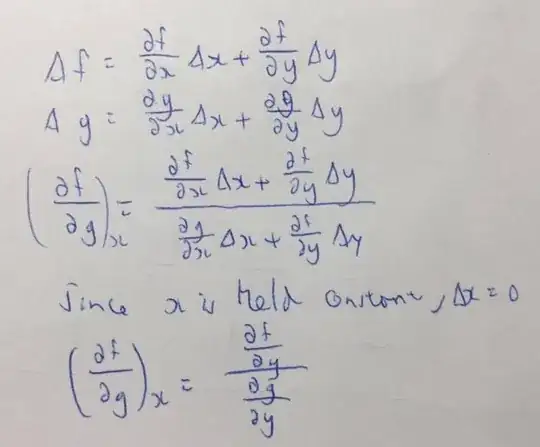 Δf = ∂f/∂x Δx + ∂f/∂y Δy
Δg = ∂y/∂x Δx + ∂g/∂y Δy
(∂f/∂g)x = (∂f/∂x Δx + ∂f/∂y Δy) / (∂g/∂x Δx + ∂f/∂y Δy)
Since x is held constant, Δx = 0
(∂f/∂g)x = (∂f/∂y) / (∂g/∂y)